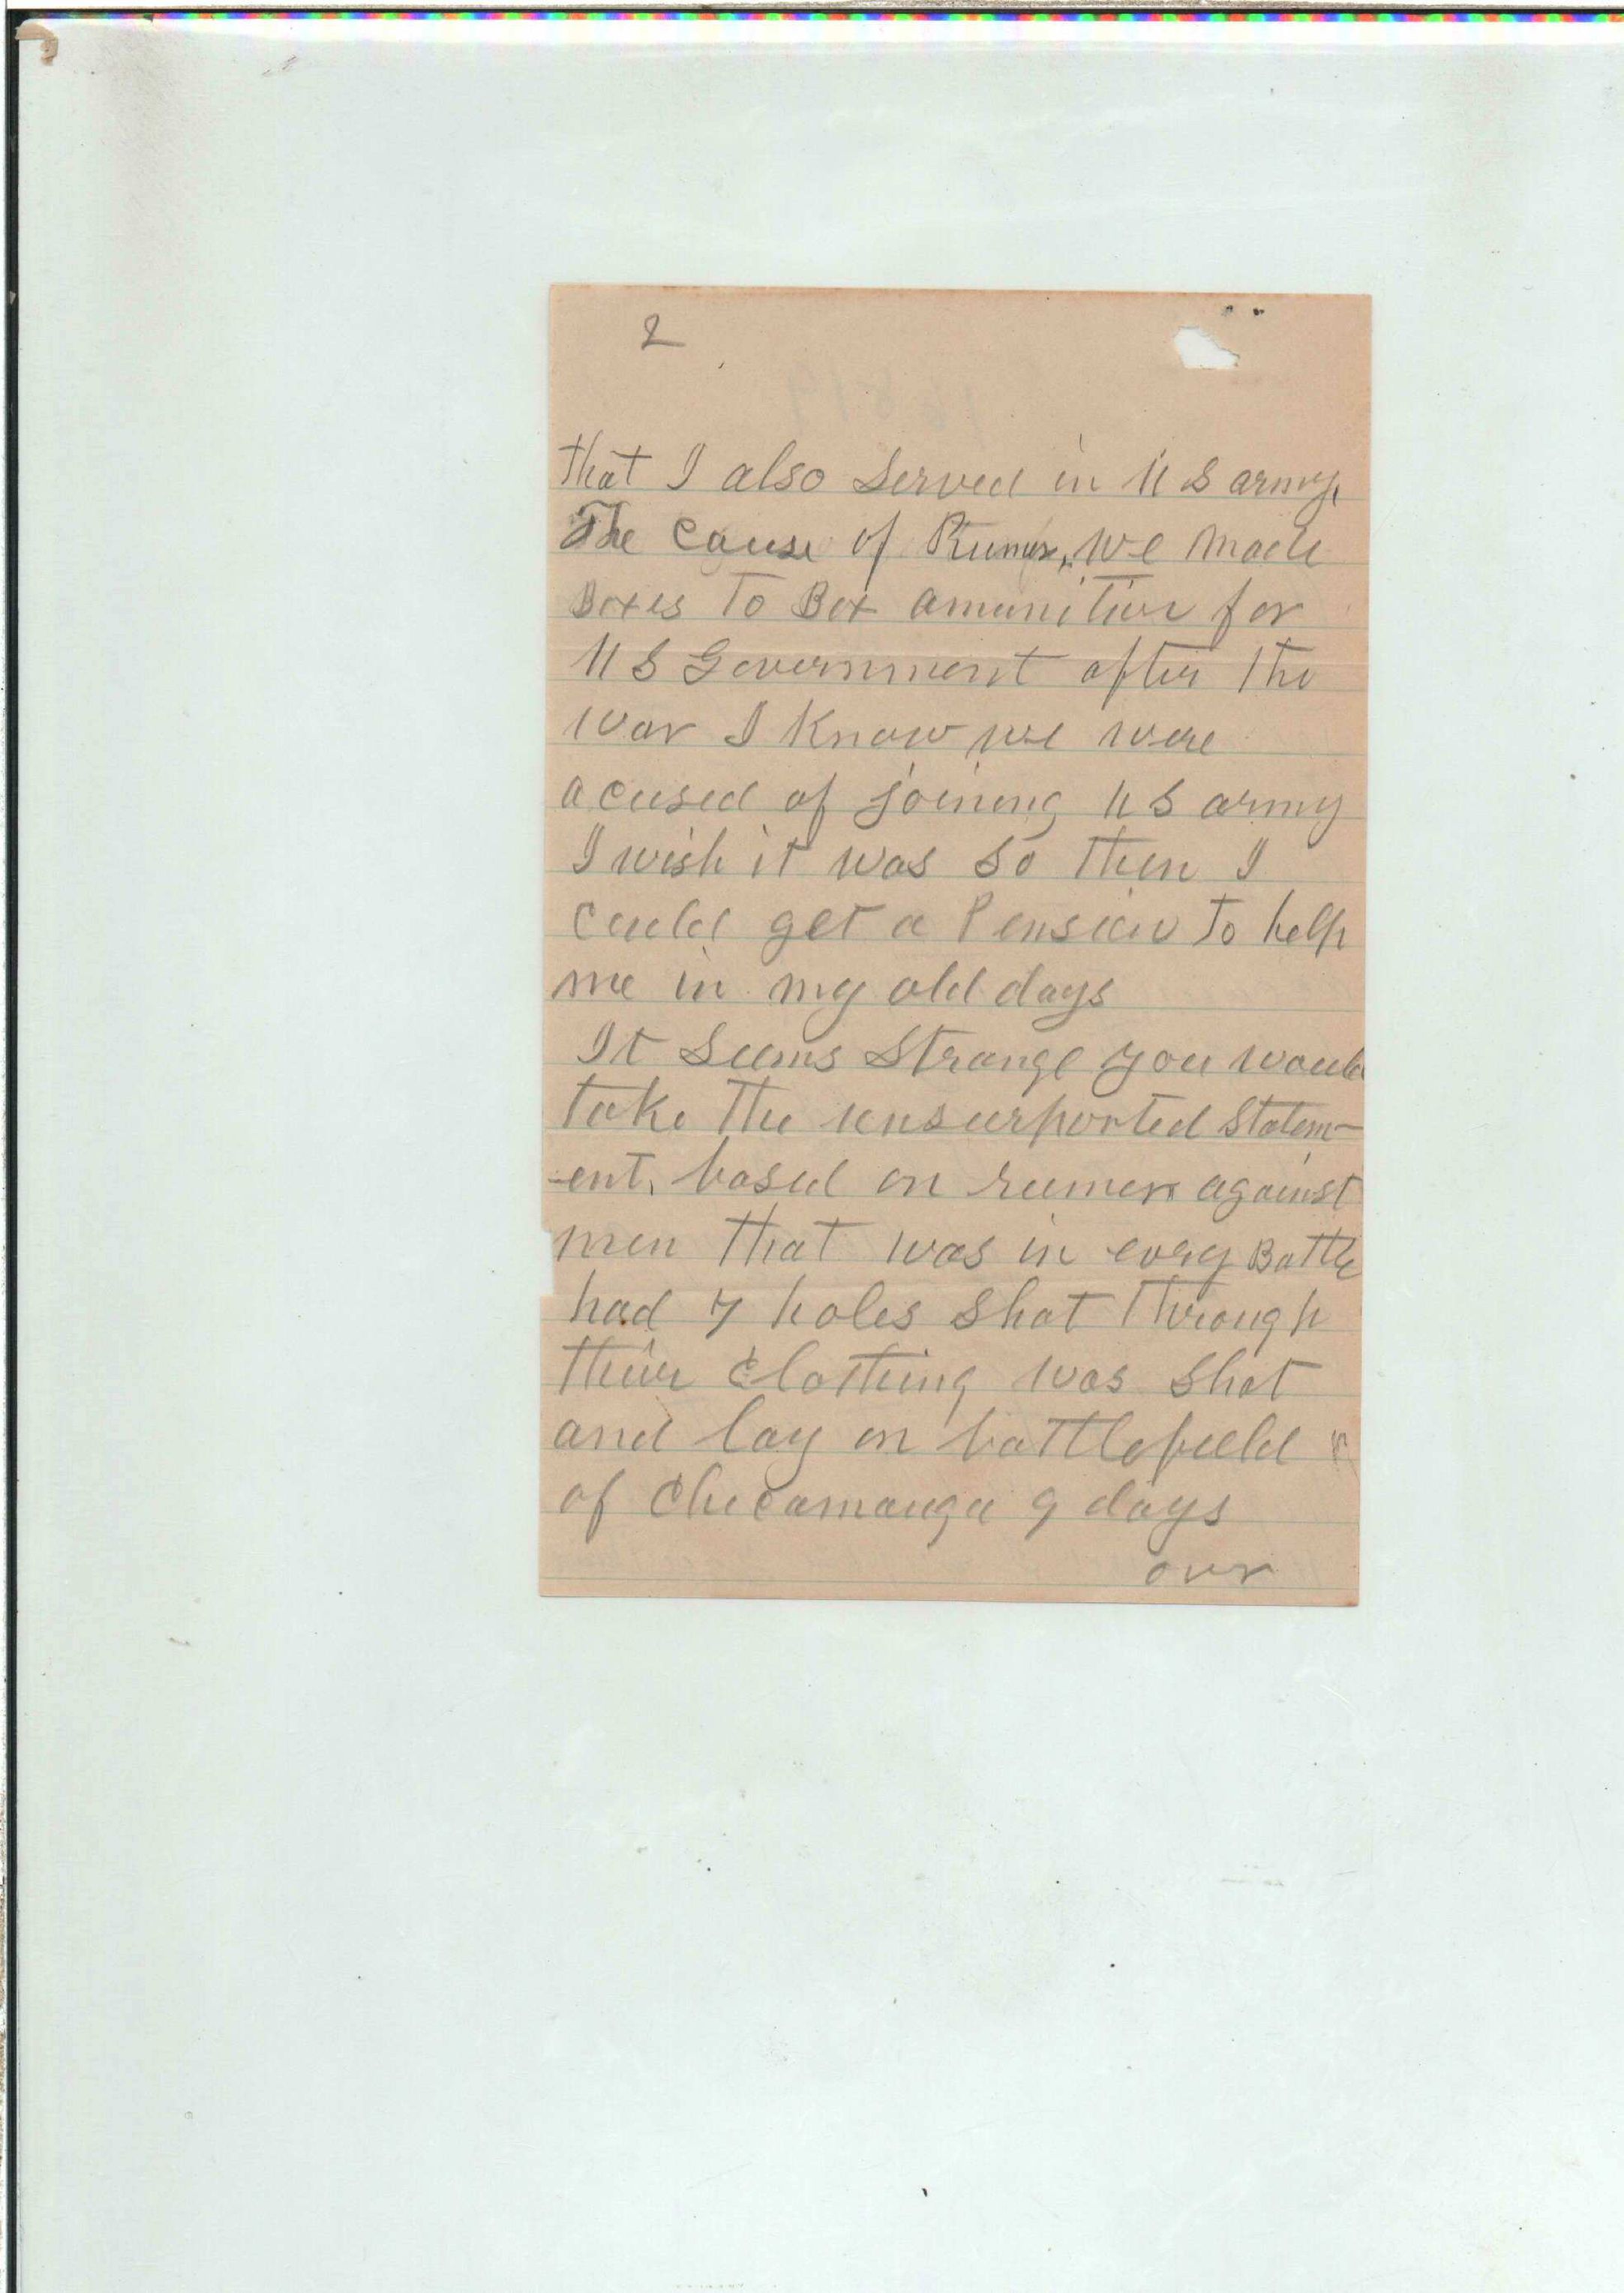 2
that I also Served in US army,
The Cause of Rumor, we made
Boxes To Box amunition for
US Government after the
War I Know we were
acused of joining US army
I wish it was so then I
could get a Pension To help
me in my old days
It Seems Strange you would
take The unsurported Statem-
-ent, based on rumor against
men that was in every Battle
had 7 holes Shot Through
their Clothing was Shot
and lay on battlefield
of Chicamauga 9 days
over